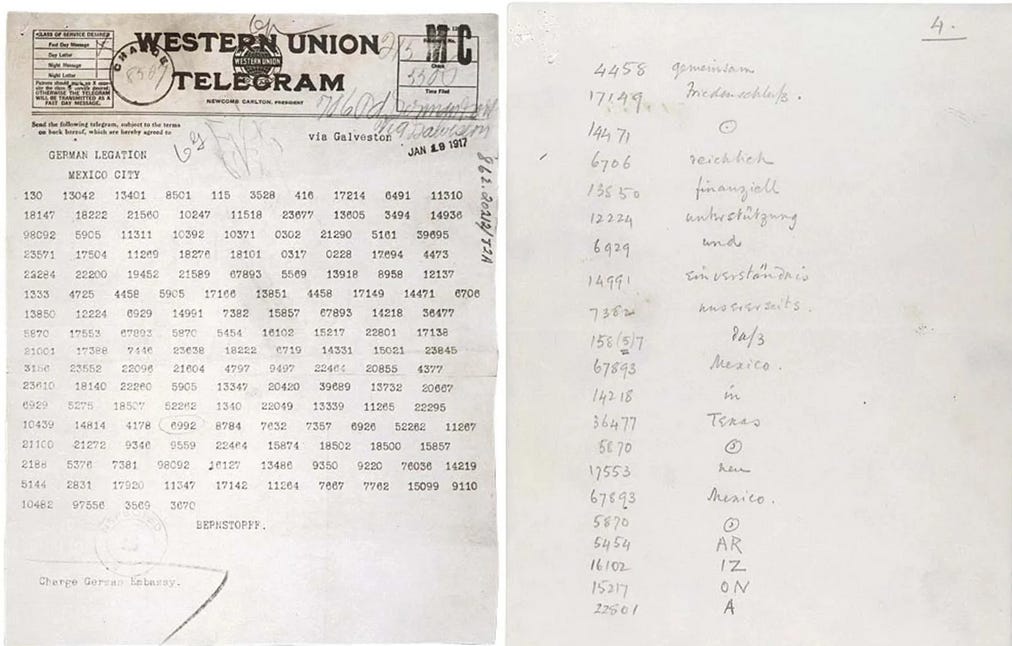 CLASS OF SERVICE DESIRED
Fast Day Message
Day Letter
Night Message
Night Letter
Patrons should mark an X oppo-
site the class of service desired;
OTHERWISE THE TELEGRAM
WILL BE TRANSMITTED AS A
FAST DAY MESSAGE.
CHARGE
WESTERN UNION
WESTERN UNION
TELEGRAM
NEWCOMB CARLTON, PRESIDENT
Check
Time Filed
Send the following telegram, subject to the terms
on back hereof, which are hereby agreed to
via Galveston
JAN 19 1917
GERMAN LEGATION
MEXICO CITY
130 13042 13401 8501 115 3528 416 17214 6491 11310
18147 18222 21560 10247 11518 23677 13605 3494 14936
98092 5905 11311 10392 10371 0302 21290 5161 39695
23571 17504 11269 18276 18101 0317 0228 17694 4473
22284 22200 19452 21589 67893 5569 13918 8958 12137
1333 4725 4458 5905 17166 13851 4458 17149 14471 6706
13850 12224 6929 14991 7382 15857 67893 14218 36477
5870 17553 67893 5870 5454 16102 15217 22801 17138
21001 17388 7446 23638 18222 6719 14331 15021 23845
3156 23552 22096 21604 4797 9497 22464 20855 4377
23610 18140 22260 5905 13347 20420 39689 13732 20667
6929 5275 18507 52262 1340 22049 13339 11265 22295
10439 14814 4178 6992 8784 7632 7357 6926 52262 11267
21100 21272 9346 9559 22464 15874 18502 18500 15857
2188 5376 7381 98092 16127 13486 9350 9220 76036 14219
5144 2831 17920 11347 17142 11264 7667 7762 15099 9110
10482 97556 3569 3670
BERNSTORFF.
Charge German Embassy.
4.
4458 gemeinsam
17149 Friedenschluß.
14471
6706 reichlich
13850 finanziell
12224 unterstützung
6929 und
14991 einverständnis
7382 unsererseits.
158(5)7 daß
67893 Mexico.
14218 in
36477 Texas
5870
17553 neu
67893 Mexico.
5870
5454 AR
16102 IZ
15217 ON
22801 A